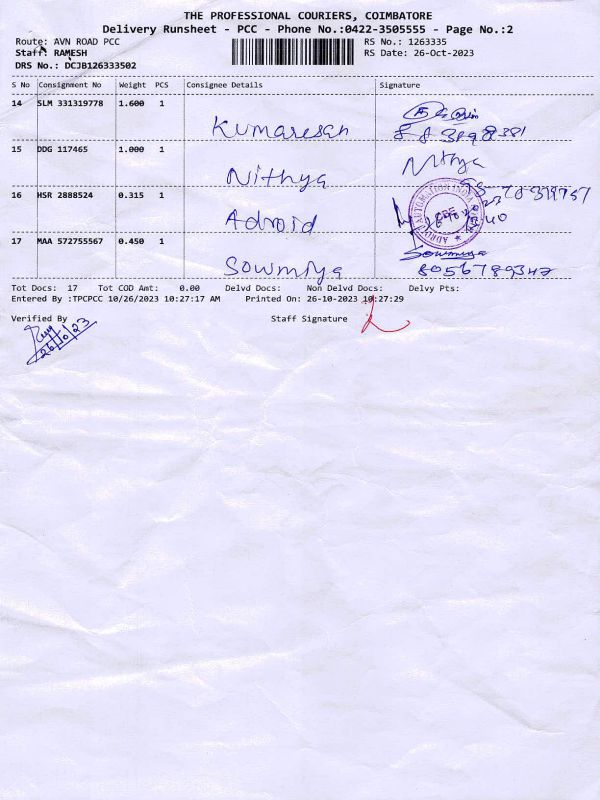 THE PROFESSIONAL COURIERS, COIMBATORE
Delivery Runsheet - PCC - Phone No.:0422-3505555 - Page No.:2
Route: AVN ROAD PCC RS No.: 1263335
Staff: RAMESH RS Date: 26-Oct-2023
DRS No.: DCJB126333502
S No Consignment No Weight PCS Consignee Details Signature
14 SLM 331319778 1.600 1
Kumaresan
15 DDG 117465 1.000 1 Nithya
Nithya
16 HSR 2888524 0.315 1
Adroid
17 MAA 572755567 0.450 1 Sowmiya
Sowmiya 8056789342
Tot Docs: 17 Tot COD Amt: 0.00 Delvd Docs: Non Delvd Docs: Delvy Pts:
Entered By :TPCPCC 10/26/2023 10:27:17 AM Printed On: 26-10-2023 10:27:29
Verified By Staff Signature
26/10/23